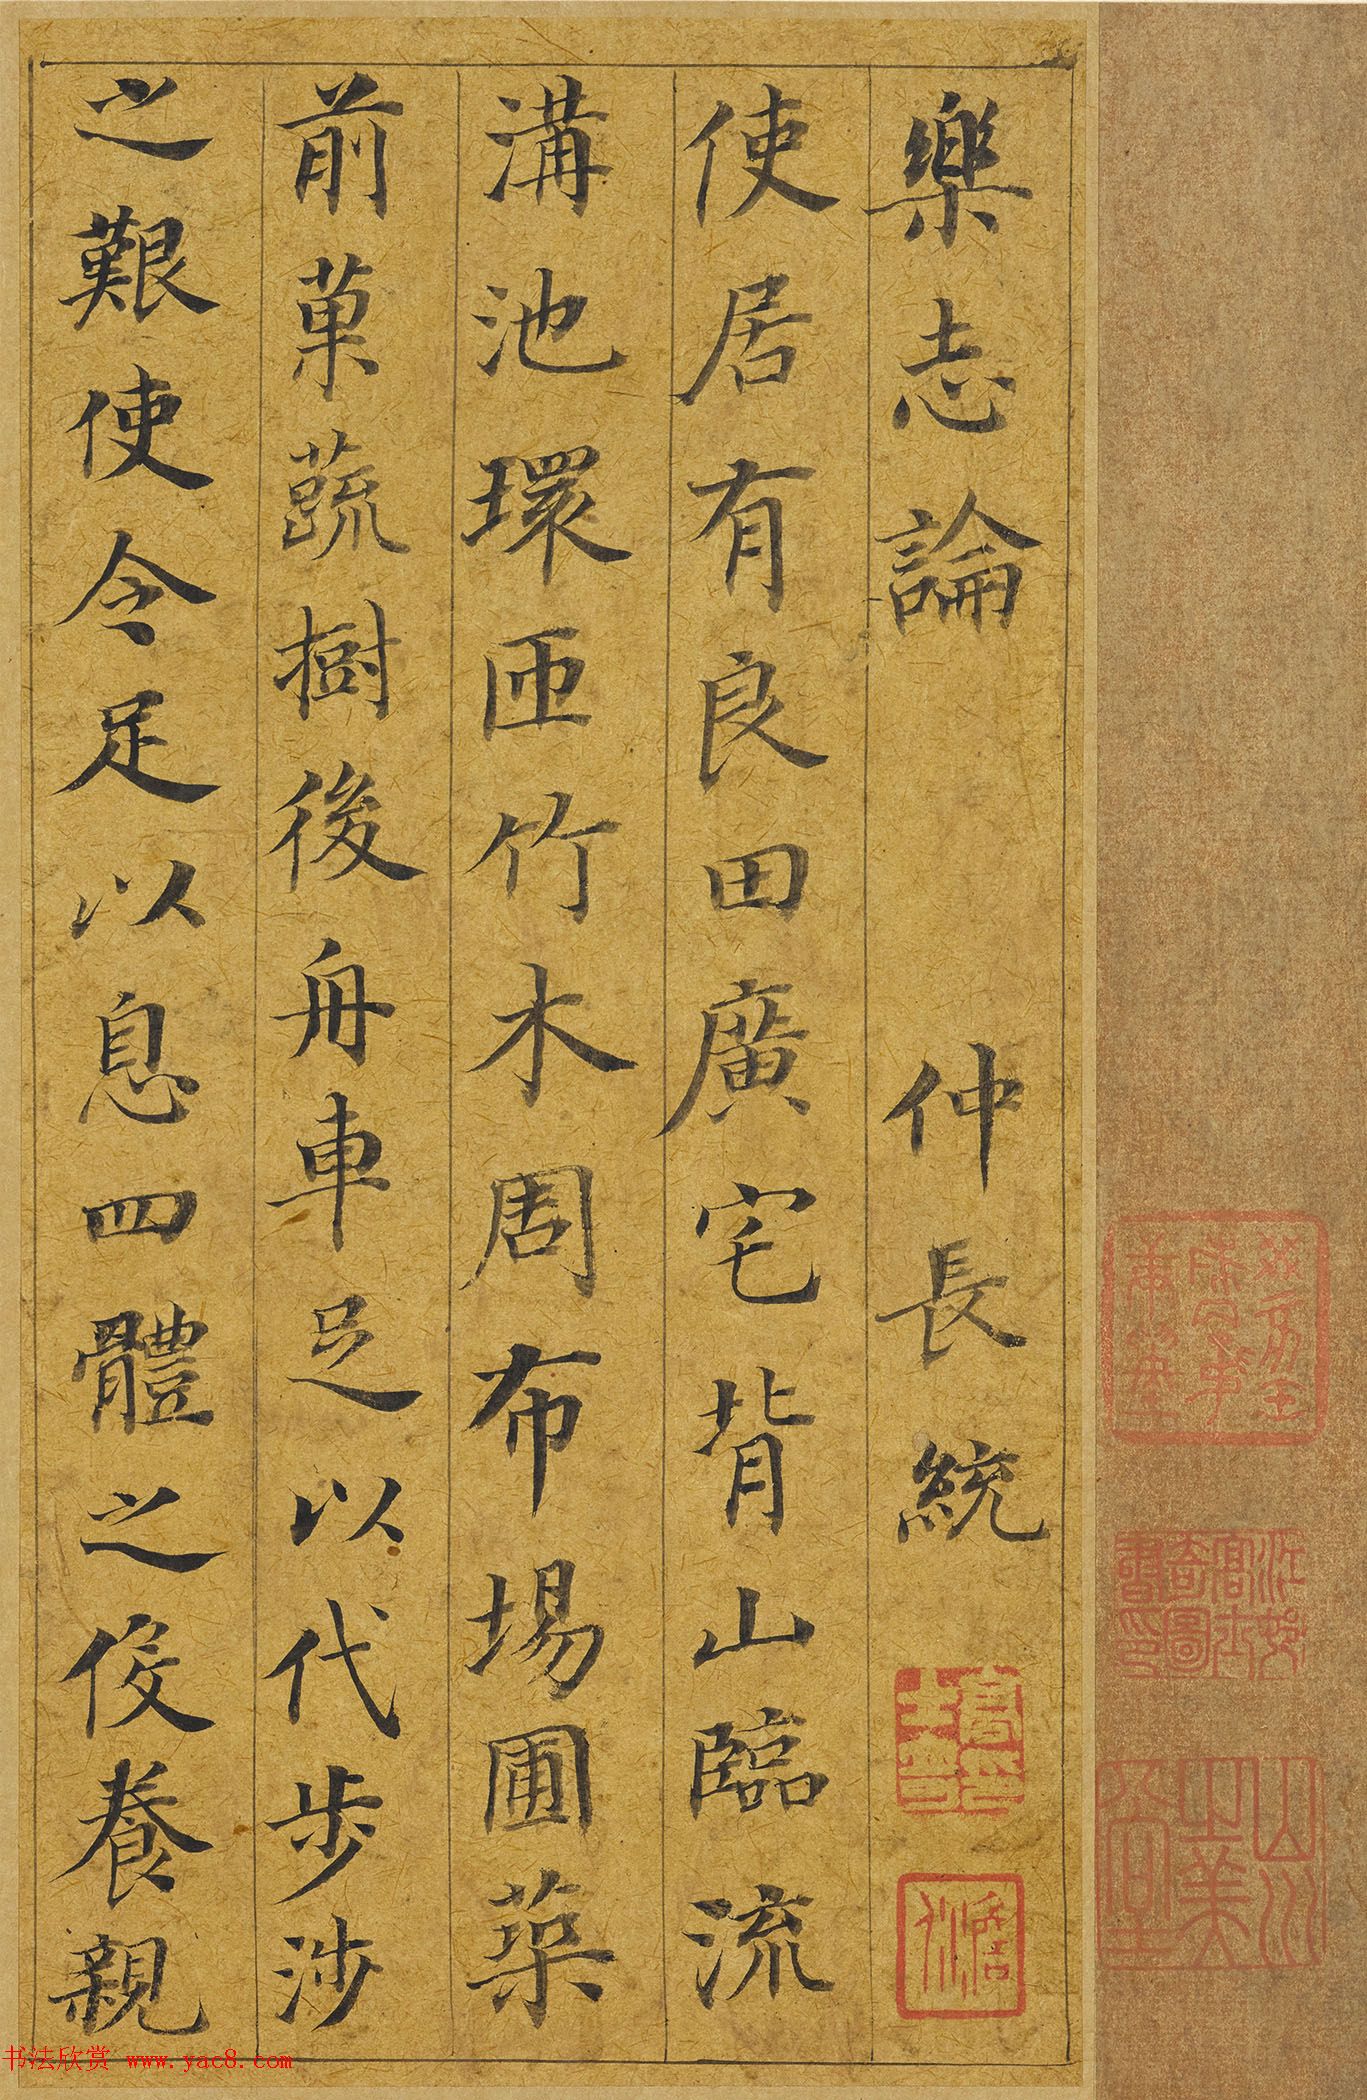 樂志論 仲長統
使居有良田廣宅背山臨流
溝池環匝竹木周布場圃築
前菓蔬樹後舟車足以代步涉
之艱使令足以息四體之役養親
山川之美
书法欣赏 www.yac8.com